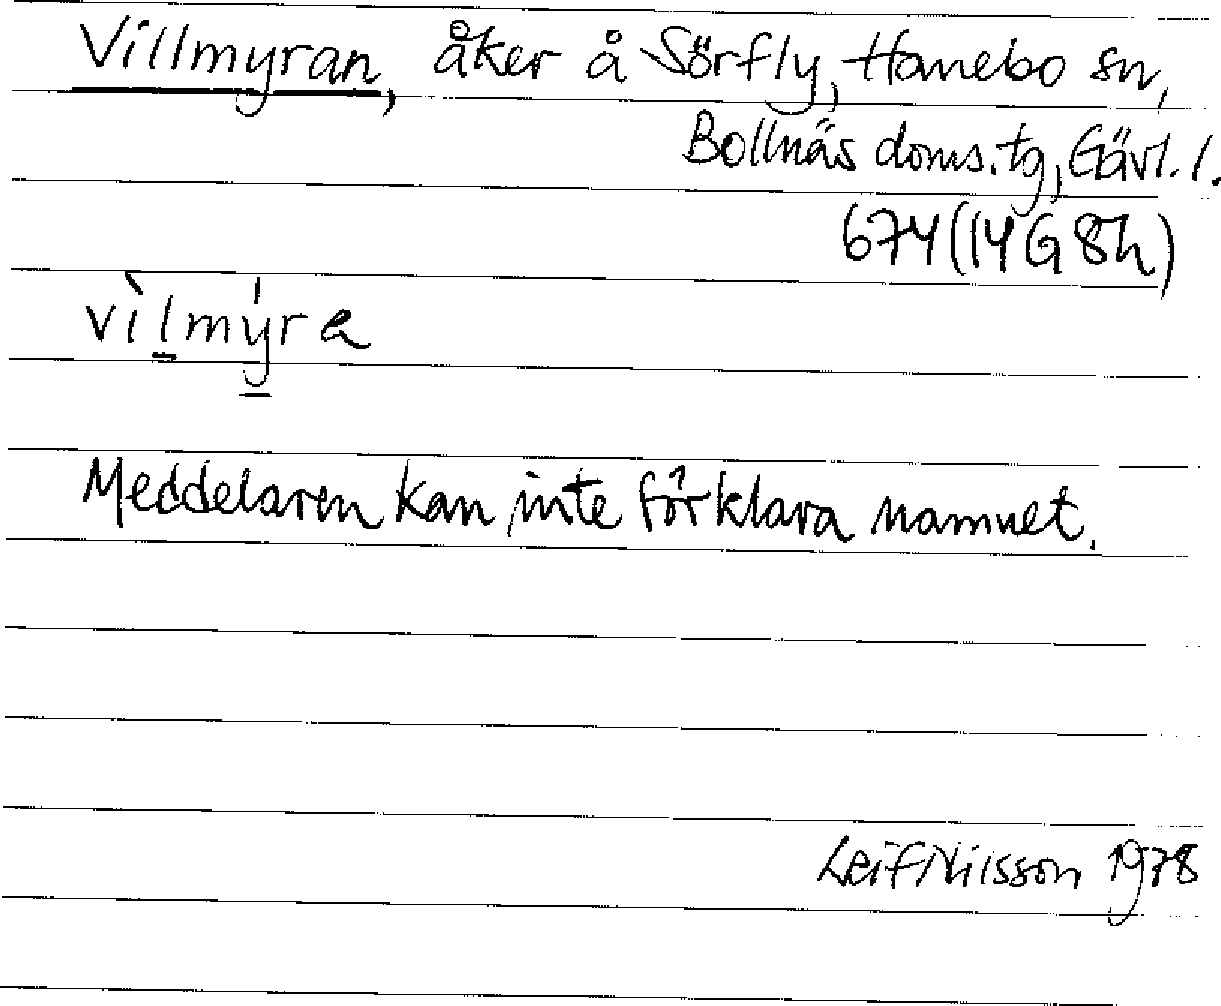 Villmyran, åker å Sörfly, Hanebo sn,
Bollnäs doms.tg, Gävl. l.
674 (14 G 8h)
vìlmýra
Meddelaren kan inte förklara namnet.
Leif Nilsson 1978